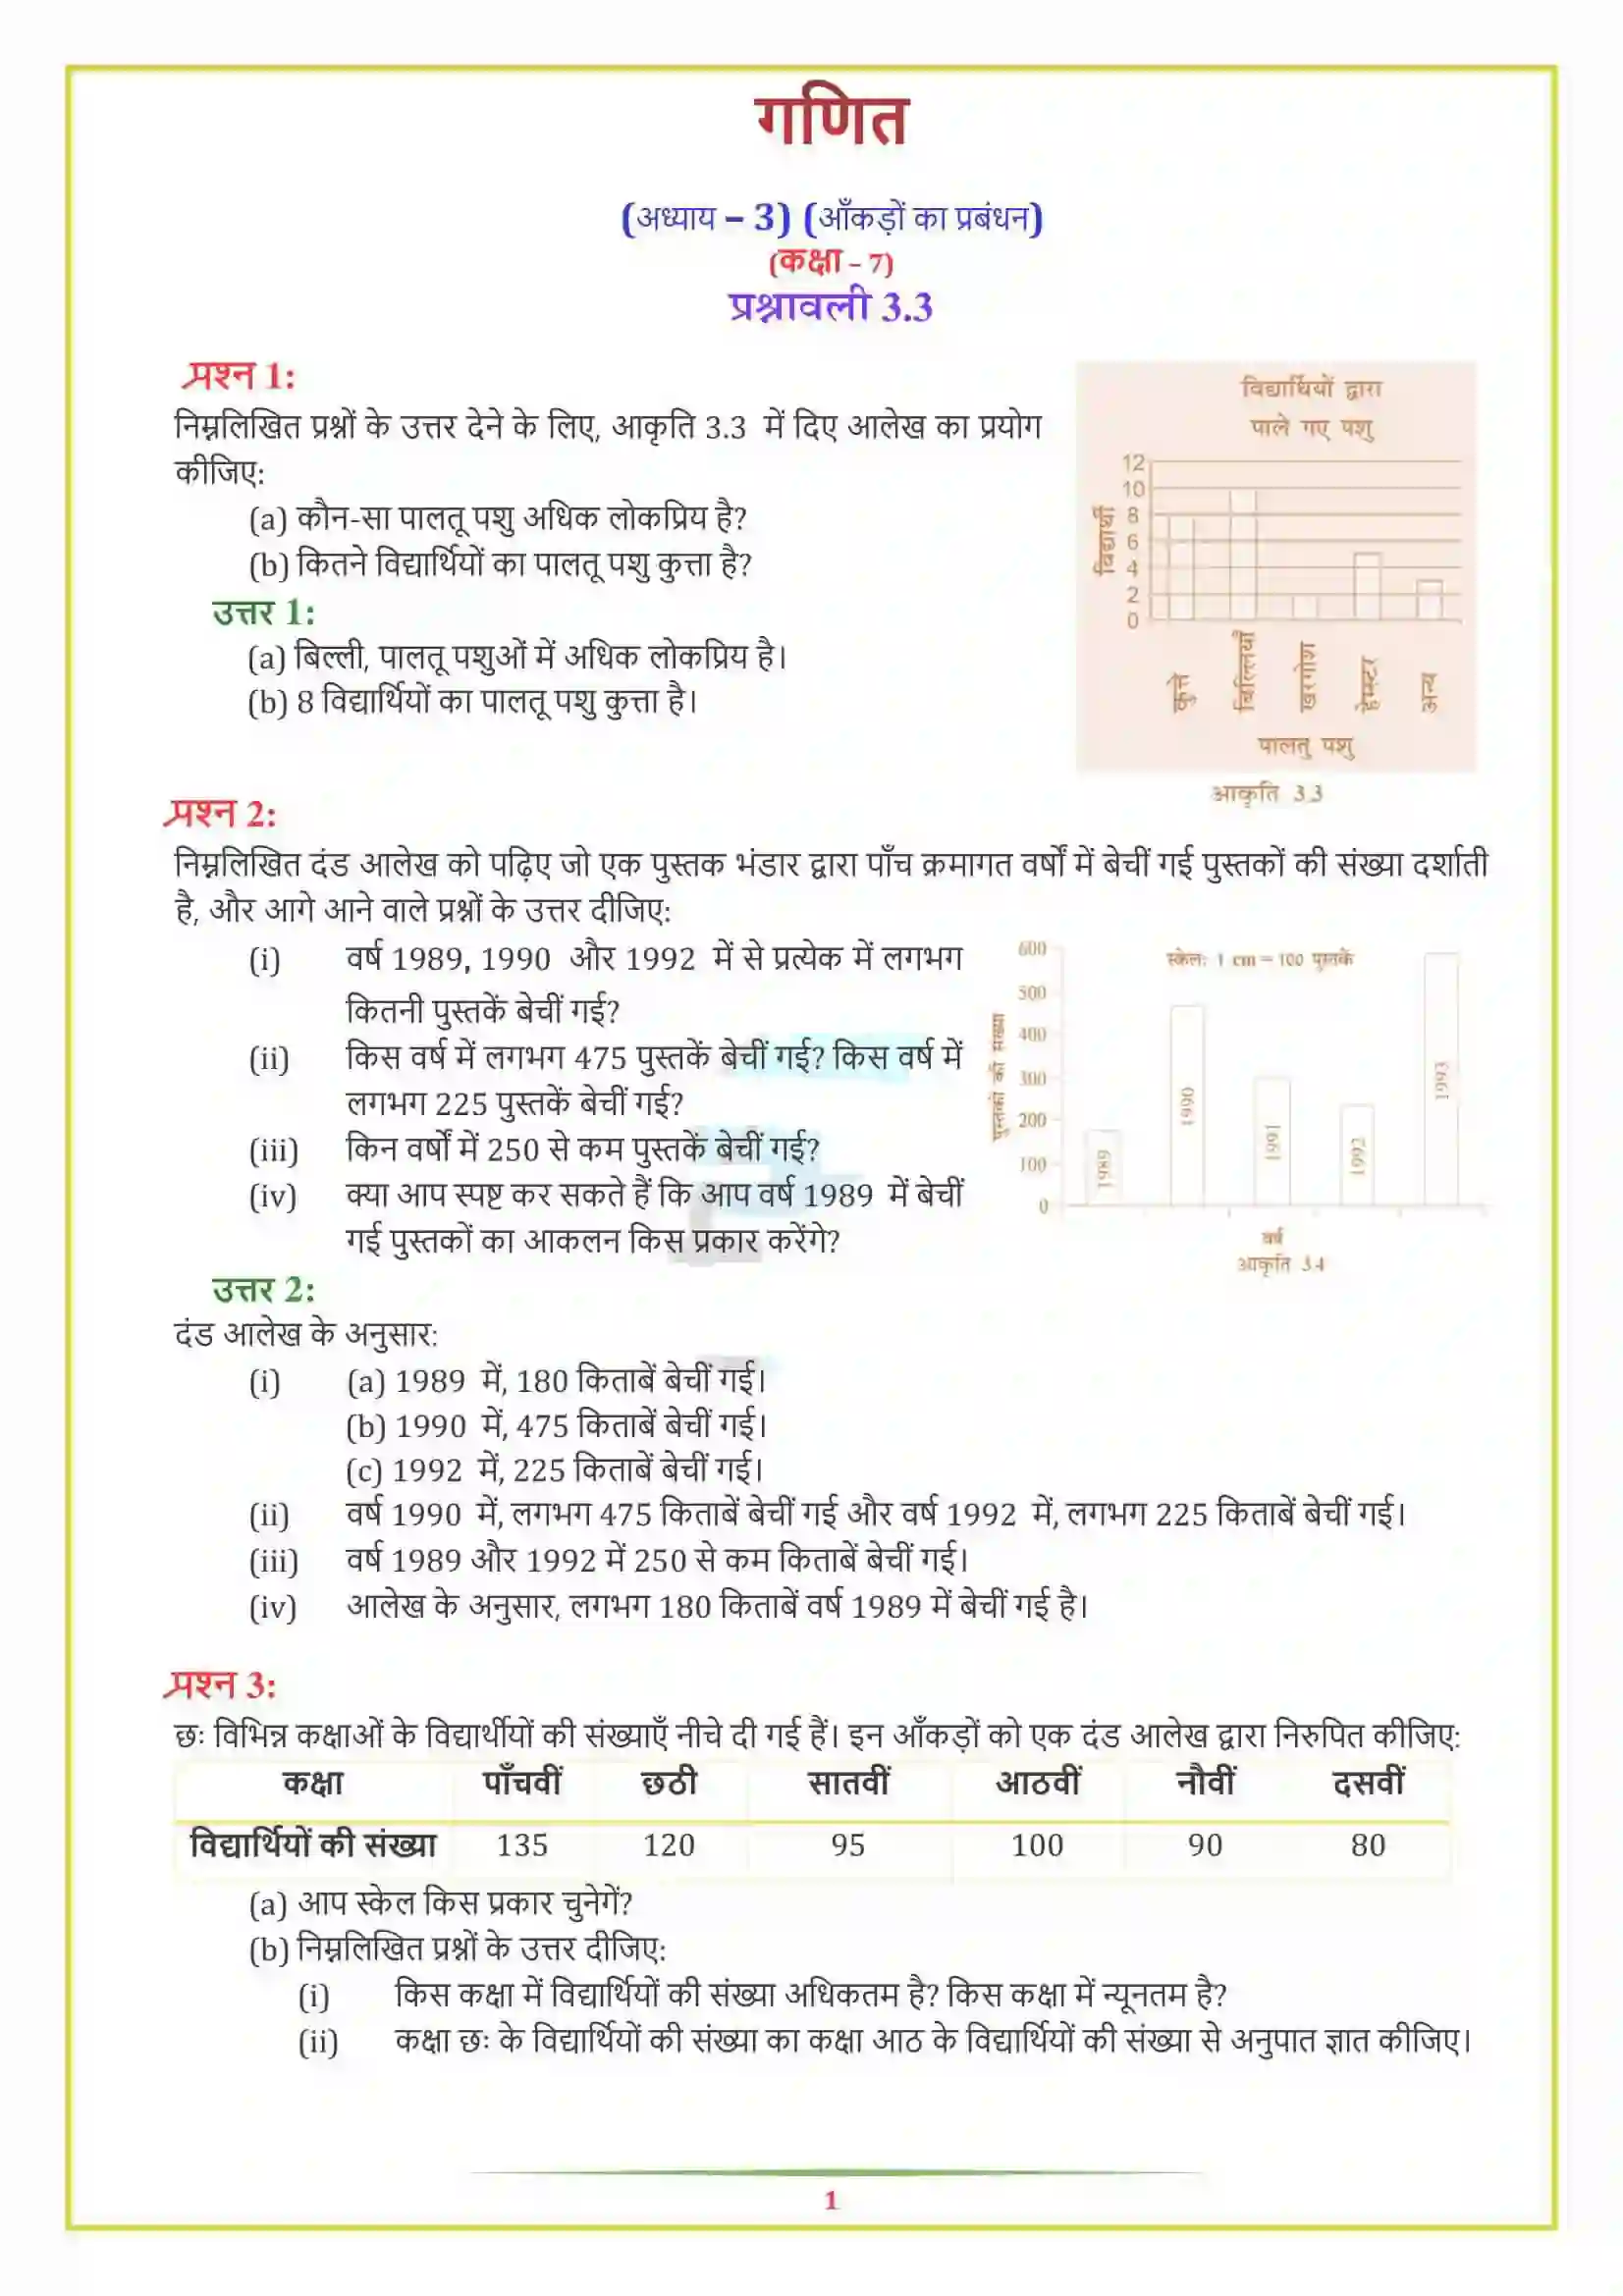 गणित
(अध्याय – 3) (आँकड़ों का प्रबंधन)
(कक्षा – 7)
प्रश्नावली 3.3
प्रश्न 1:
निम्नलिखित प्रश्नों के उत्तर देने के लिए, आकृति 3.3 में दिए आलेख का प्रयोग
कीजिए:
(a) कौन-सा पालतू पशु अधिक लोकप्रिय है?
(b) कितने विद्यार्थियों का पालतू पशु कुत्ता है?
उत्तर 1:
(a) बिल्ली, पालतू पशुओं में अधिक लोकप्रिय है।
(b) 8 विद्यार्थियों का पालतू पशु कुत्ता है।
विद्यार्थियों द्वारा
पाले गए पशु
12
10
8
6
4
2
0
विद्यार्थी
कुत्ते
बिल्लियाँ
खरगोश
हेम्स्टर
अन्य
पालतु पशु
आकृति 3.3
प्रश्न 2:
निम्नलिखित दंड आलेख को पढ़िए जो एक पुस्तक भंडार द्वारा पाँच क्रमागत वर्षों में बेचीं गई पुस्तकों की संख्या दर्शाती
है, और आगे आने वाले प्रश्नों के उत्तर दीजिए:
(i) वर्ष 1989, 1990 और 1992 में से प्रत्येक में लगभग
कितनी पुस्तकें बेचीं गई?
(ii) किस वर्ष में लगभग 475 पुस्तकें बेचीं गई? किस वर्ष में
लगभग 225 पुस्तकें बेचीं गई?
(iii) किन वर्षों में 250 से कम पुस्तकें बेचीं गई?
(iv) क्या आप स्पष्ट कर सकते हैं कि आप वर्ष 1989 में बेचीं
गई पुस्तकों का आकलन किस प्रकार करेंगे?
स्केल: 1 cm = 100 पुस्तकें
600
500
400
300
200
100
0
पुस्तकों की संख्या
1989
1990
1991
1992
1993
वर्ष
आकृति 3.4
उत्तर 2:
दंड आलेख के अनुसार:
(i) (a) 1989 में, 180 किताबें बेचीं गई।
(b) 1990 में, 475 किताबें बेचीं गई।
(c) 1992 में, 225 किताबें बेचीं गई।
(ii) वर्ष 1990 में, लगभग 475 किताबें बेचीं गई और वर्ष 1992 में, लगभग 225 किताबें बेचीं गई।
(iii) वर्ष 1989 और 1992 में 250 से कम किताबें बेचीं गई।
(iv) आलेख के अनुसार, लगभग 180 किताबें वर्ष 1989 में बेचीं गई है।
प्रश्न 3:
छः विभिन्न कक्षाओं के विद्यार्थीयों की संख्याएँ नीचे दी गई हैं। इन आँकड़ों को एक दंड आलेख द्वारा निरुपित कीजिए:
कक्षा पाँचवीं छठी सातवीं आठवीं नौवीं दसवीं
विद्यार्थियों की संख्या 135 120 95 100 90 80
(a) आप स्केल किस प्रकार चुनेगें?
(b) निम्नलिखित प्रश्नों के उत्तर दीजिए:
(i) किस कक्षा में विद्यार्थियों की संख्या अधिकतम है? किस कक्षा में न्यूनतम है?
(ii) कक्षा छः के विद्यार्थियों की संख्या का कक्षा आठ के विद्यार्थियों की संख्या से अनुपात ज्ञात कीजिए।
1